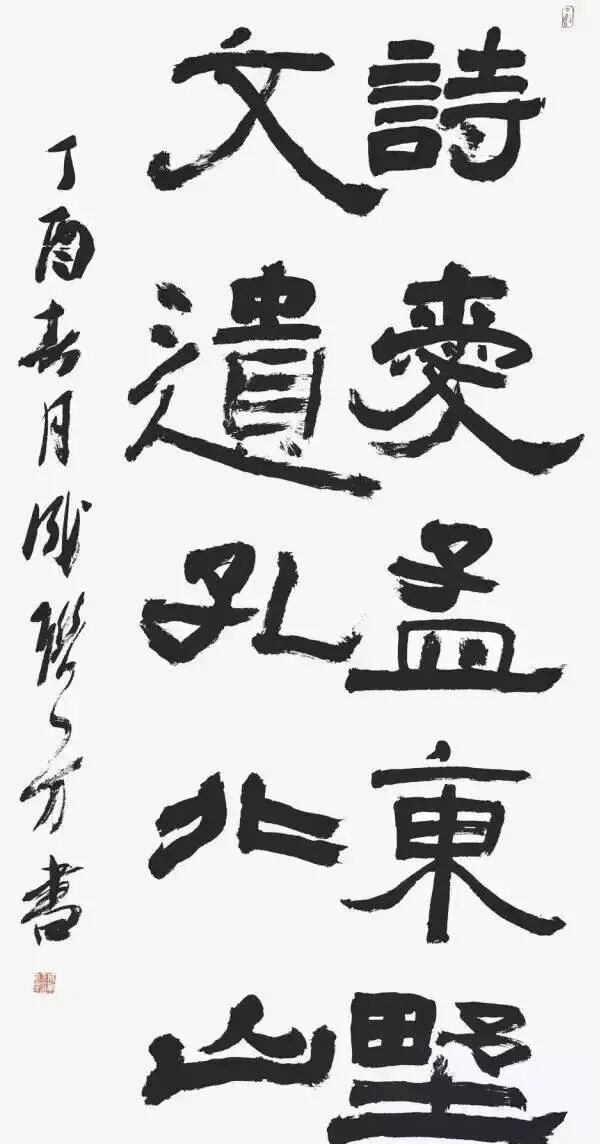 詩愛孟東野
文遺孔北山
丁酉春月成聯方書